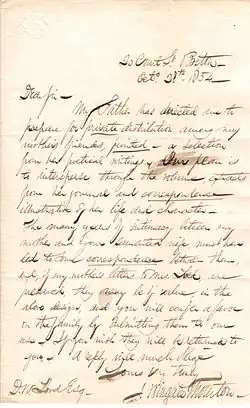 20 Court St Boston
Octo. 28th 1854
Dear Sir -
My Father has directed me to
prepare for private distribution among my
mother's friends, printed - a selection
from her poetical writings. Our plan is
to intersperse through the volume extracts
from her journal and correspondence
illustrative of her life and character -
The many years of intimacy between my
mother and your lamented wife must have
led to some correspondence between them
and, if my mother's letters to Mrs. Lord are
preserved, they may be of value in the
above design, and you will confer a favor
on the family by submitting them to our
use. If you wish they will be returned to
you. A reply will much oblige
Yours very truly
D. W. Lord Esq.